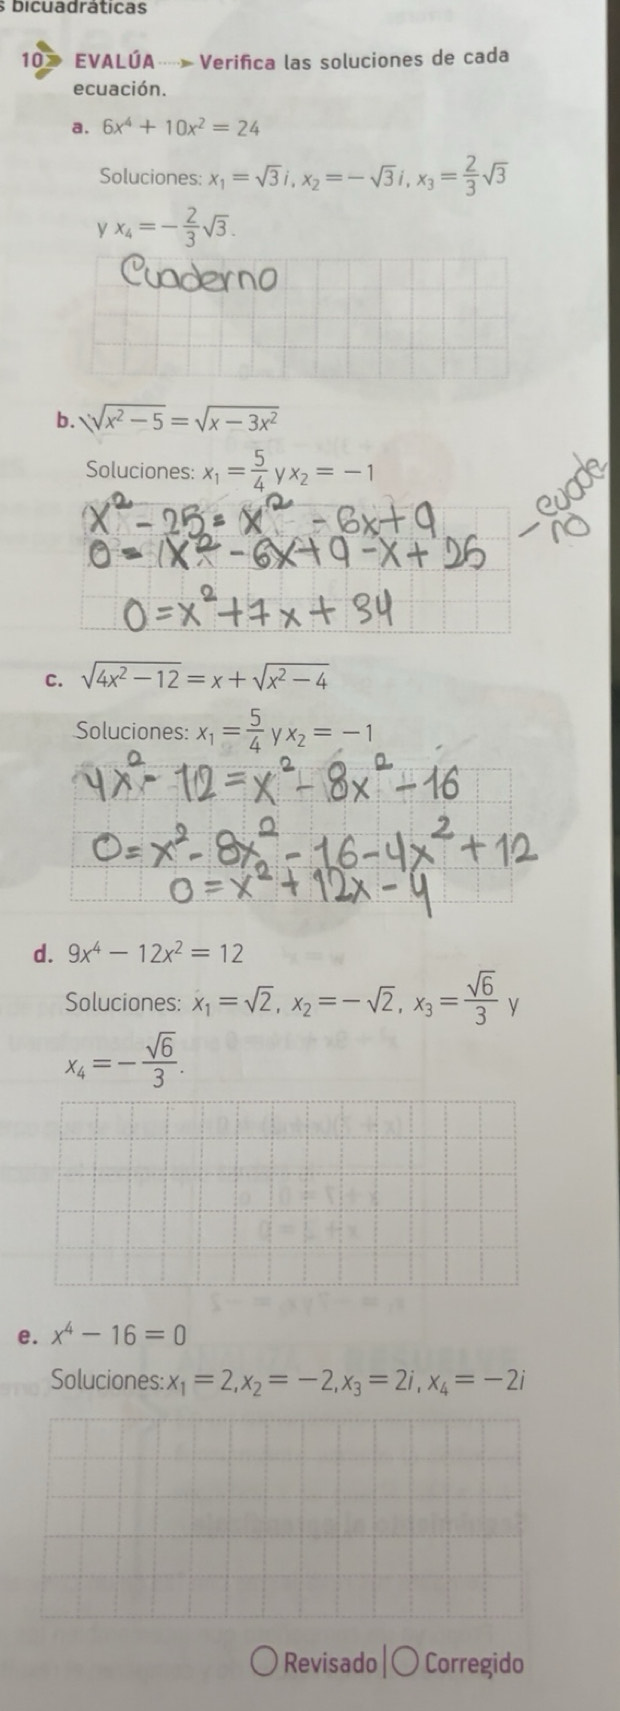 s bicuadráticas
10 EVALÚA Verifica las soluciones de cada
ecuación.
a. 6x⁴ + 10x² = 24
Soluciones: x₁ = √3 i, x₂ = −√3 i, x₃ = 2/3 √3
y x₄ = −2/3 √3.
Cuaderno
b. √x² − 5 = √x − 3x²
Soluciones: x₁ = 5/4 y x₂ = −1
x² - 25 = x² - 6x + 9
0 = x² - 6x + 9 - x + 25
0 = x² + 7x + 34
- cuade
no
c. √4x² − 12 = x + √x² − 4
Soluciones: x₁ = 5/4 y x₂ = −1
4x² - 12 = x² - 8x² - 16
0 = x² - 8x² - 16 - 4x² + 12
0 = x² + 12x - 4
d. 9x⁴ − 12x² = 12
Soluciones: x₁ = √2, x₂ = −√2, x₃ = √6/3 y
x₄ = −√6/3.
e. x⁴ − 16 = 0
Soluciones: x₁ = 2, x₂ = −2, x₃ = 2i, x₄ = −2i
Revisado | Corregido